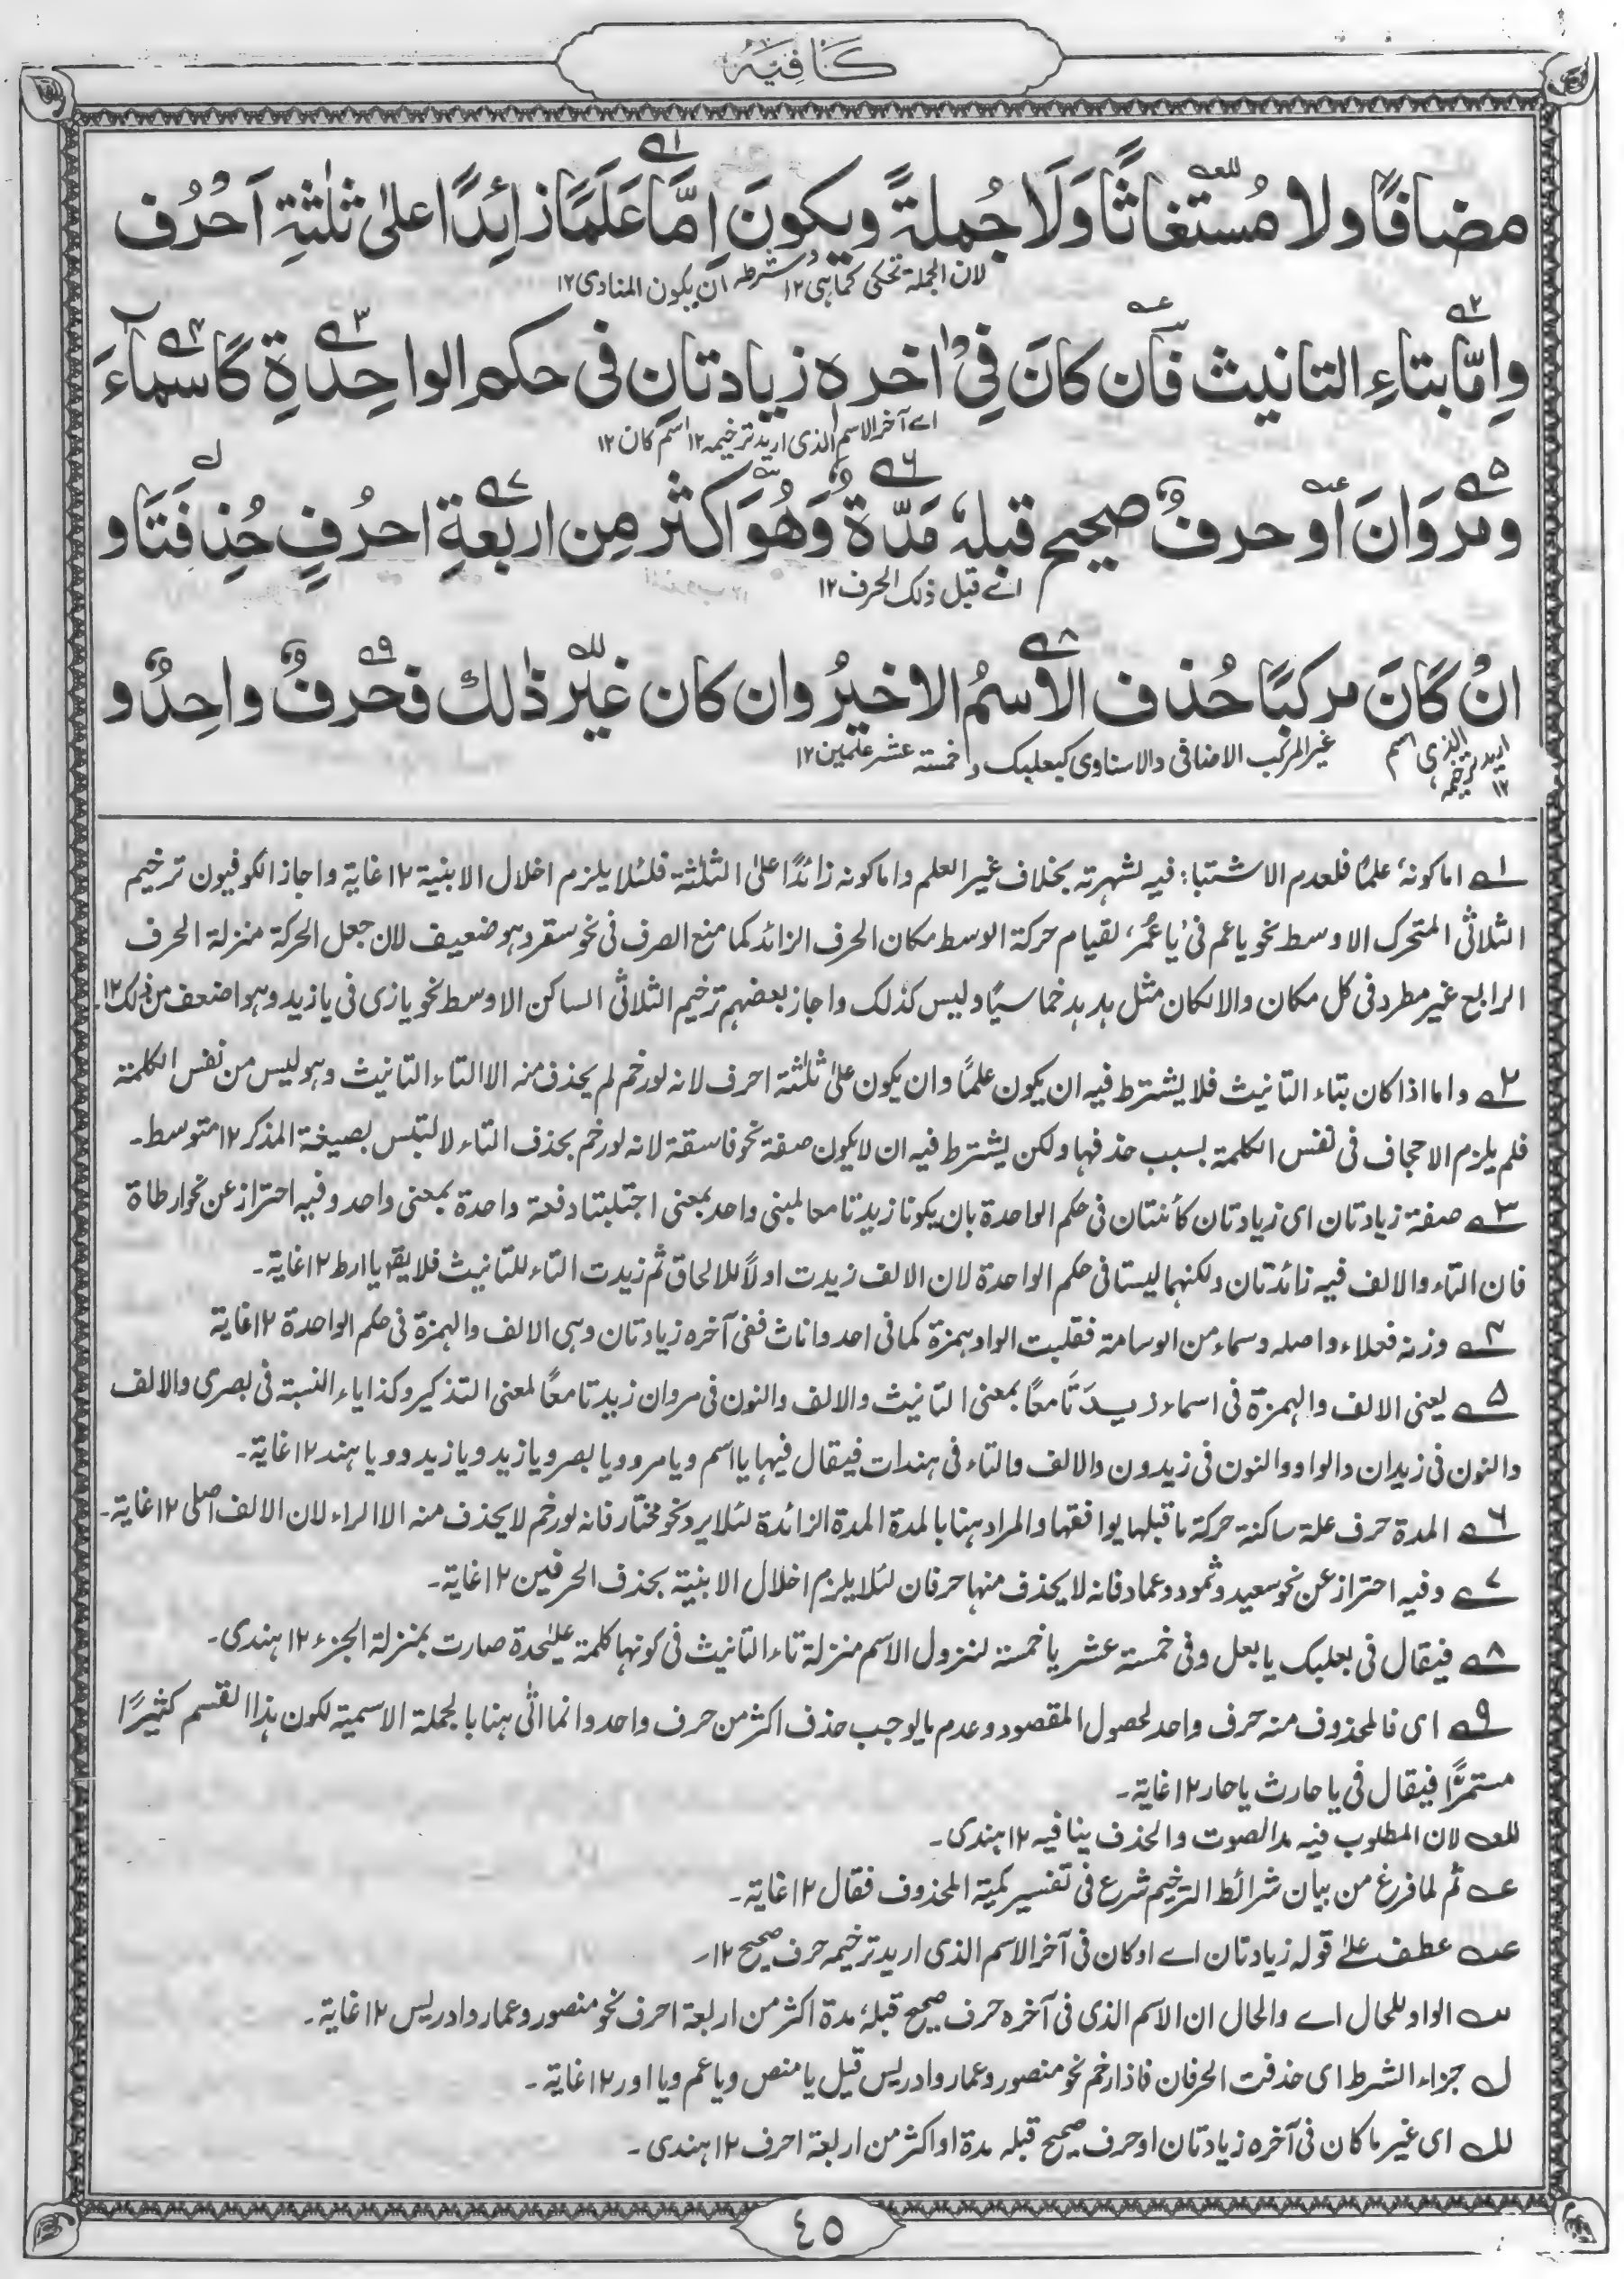 كَافِيَة
مضافًا ولا مُستغاثًا وَلَا جُملةً ويكونَ اِمَّا عَلَمًا زائِدًا اعلىٰ ثلٰثةِ اَحْرُف
لان الجملة تحكى كما هى ١٢ شرطه ان يكون المنادى ١٢
وِاِمّا بتاءِ التانيث فَاَن كانَ فِىْ اخره زيادتانِ فى حكمِ الواحِدةِ كَاَسماءَ
اے آخر الاسم الذى اريد ترخيمه ١٢ اسم كان ١٢
ومروَانَ اَو حرفٌ صحيح قبلهٗ مَدّةٌ وَهُوَ اكثر مِن اربعةِ احرُفٍ حُذِفَتَا و
اے قبل ذلك الحرف ١٢
انْ كَانَ مركبًا حُذف الاسمُ الاخيرُ وان كان غيْرَ ذٰلك فحَرفٌ واحِدٌ و
اسم الذى اريد ترخيمه ١٢ غير المركب الاضافى والاسنادى كبعلبك و خمسة عشر علمين ١٢
١ے اما كونهٗ علمًا فلعدم الاشتباه فيه لشهرته بخلاف غير العلم واما كونه زائدًا على الثلٰثة فلئلا يلزم اخلال الابنية ١٢ غاية واجاز الكوفيون ترخيم
الثلاثى المتحرك الاوسط نحو يا عم فى يا عُمَرُ لقيام حركة الوسط مكان الحرف الزائد كما منع الصرف فى نحو سقر وهو ضعيف لان جعل الحركة منزلة الحرف
الرابع غير مطرد فى كل مكان والا لكان مثل هدهد خماسيًا وليس كذلك واجاز بعضهم ترخيم الثلاثى الساكن الاوسط نحو يا زى فى يا زيد وهو اضعف من ذلك ١٢
٢ے واما اذا كان بتاء التانيث فلا يشترط فيه ان يكون علمًا وان يكون على ثلٰثة احرف لانه لو رخم لم يحذف منه الا التاء التانيث وهو ليس من نفس الكلمة
فلم يلزم الاحجاف فى نفس الكلمة بسبب حذفها ولكن يشترط فيه ان لا يكون صفة نحو فاسقة لانه لو رخم بحذف التاء لالتبس بصيغة المذكر ١٢ متوسط۔
٣ے صفة زيادتان اى زيادتان كائنتان فى حكم الواحدة بان يكونا زيدتا معا لمبنى واحد بمعنى اجتلبتا دفعة واحدة بمعنى واحد وفيه احتراز عن نحو ارطاة
فان التاء والالف فيه زائدتان ولكنهما ليستا فى حكم الواحدة لان الالف زيدت اولًا للالحاق ثم زيدت التاء للتانيث فلا يقع يا ارط ١٢ غاية۔
٤ے وزنه فعلاء واصله وسماء من الوسامة فقلبت الواو همزة كما فى احد واناث ففى آخره زيادتان وهى الالف والهمزة فى حكم الواحدة ١٢ غاية
٥ے يعنى الالف والهمزة فى اسماء زيدَتَا معًا بمعنى التانيث والالف والنون فى مروان زيدتا معًا لمعنى التذكير وكذا ياء النسبة فى بصرى والالف
والنون فى زيدان والواو والنون فى زيدون والالف والتاء فى هندات فيقال فيها يا اسم ويا مرو ويا بصر ويا زيد ويا زيدو ويا هند ١٢ غاية۔
٦ے المدة حرف علة ساكنة حركة ما قبلها يوافقها والمراد هنا بالمدة المدة الزائدة لئلا يرد نحو مختار فانه لو رخم لا يحذف منه الا الراء لان الالف اصلى ١٢ غاية۔
٧ے وفيه احتراز عن نحو سعيد وثمود وعماد فانه لا يحذف منها حرفان لئلا يلزم اخلال الابنية بحذف الحرفين ١٢ غاية۔
٨ے فيقال فى بعلبك يا بعل وفى خمسة عشر يا خمسة لنزول الاسم منزلة تاء التانيث فى كونها كلمة علٰيحدة صارت بمنزلة الجزء ١٢ هندى۔
٩ے اى فالمحذوف منه حرف واحد لحصول المقصود وعدم ما يوجب حذف اكثر من حرف واحد وانما اتٰى هنا بالجملة الاسمية لكون هذا القسم كثيرًا
مستمرًّا فيقال فى يا حارث يا حار ١٢ غاية۔
للعه لان المطلوب فيه مد الصوت والحذف ينافيه ١٢ هندى۔
عه ثم لما فرغ من بيان شرائط الترخيم شرع فى تفسير كمية المحذوف فقال ١٢ غاية۔
عه عطف علے قوله زيادتان اے او كان فى آخر الاسم الذى اريد ترخيمه حرف صحيح ١٢۔
سه الواو للحال اے والحال ان الاسم الذى فى آخره حرف صحيح قبلهٗ مدة اكثر من اربعة احرف نحو منصور وعمار وادريس ١٢ غاية۔
ل جزاء الشرط اى حذفت الحرفان فاذا رخم نحو منصور وعمار وادريس قيل يا منص ويا عم ويا ادر ١٢ غاية۔
لله اى غير ما كان فى آخره زيادتان او حرف صحيح قبله مدة او اكثر من اربعة احرف ١٢ هندى۔
٤٥